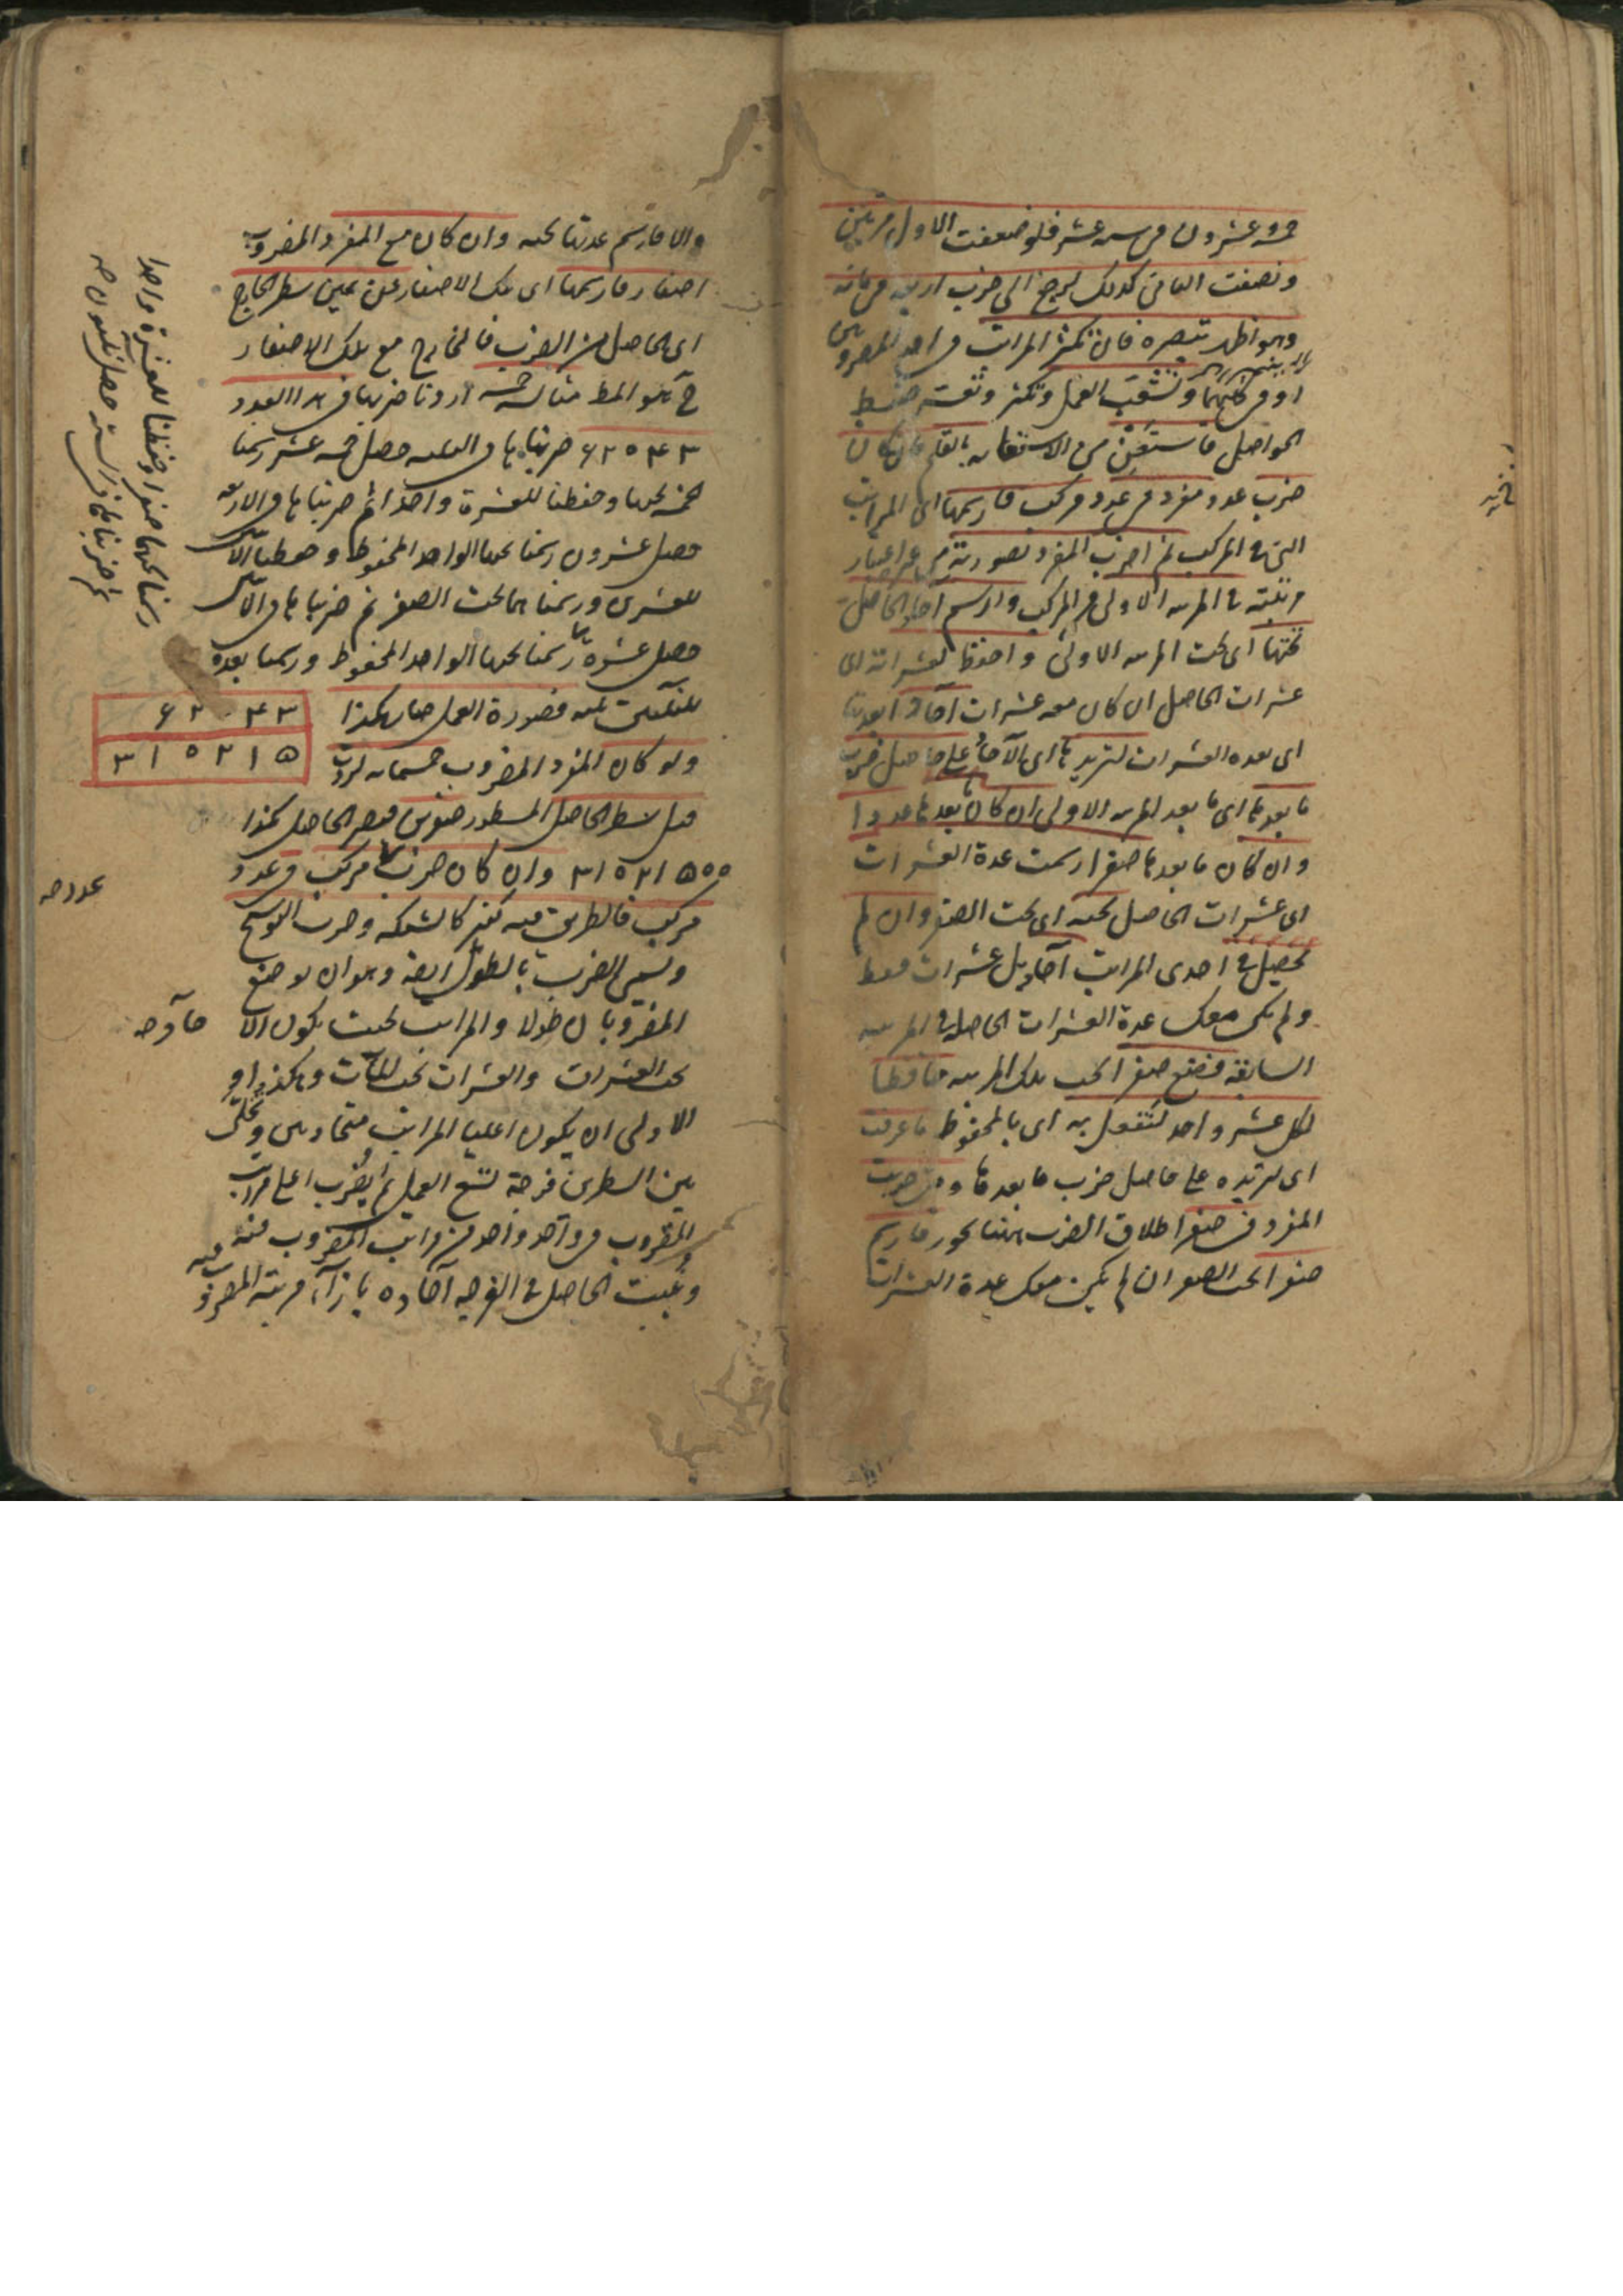 خمسة وعشرون في ستة عشر فلو ضعفت الاول مرتين
ونصفت الثاني كذلك لرجع الى ضرب اربعة في مائة
وهو اظهر تبصره فان تكثر المراتب في احد المضروبين
او في كليهما وتشعب العمل وتكثر وتعسر ضبط
الحواصل فاستعن في الاستعانه بالقلم فان كان
ضرب عدد مفرد في عدد مركب فارسمها اي المراتب
التي في المركب ثم اضرب المفرد بصورته من غير اعتبار
مرتبته في المرتبه الاولى من المركب وارسم آحاد الحاصل
تحتها اي تحت المرتبه الاولى واحفظ لعشراته اي
عشرات الحاصل ان كان معه عشرات آحادا بعدة
اي بعده العشرات لتزيدها اي الآحاد على حاصل ضرب
ما بعدها اي ما بعد المرتبه الاولى ان كان بعدها عددا
وان كان ما بعدها صفرا رسمت عدة العشرات
اي عشرات الحاصل تحته اي تحت الصفر وان لم
تحصل في احدى المراتب آحاد بل عشرات فقط
ولم يكن معك عدة العشرات الحاصله في المرتبه
السابقه فضع صفرا تحت تلك المرتبه حافظا
لكل عشر واحد لتفعل به اي بالمحفوظ ما عرفت
اي لتزيده على حاصل ضرب ما بعدها ومتى ضربت
المفرد في صفر اطلاق الضرب ههنا تجوز فارسم
صفرا تحت الصفر ان لم يكن معك عدة العشرات
والا فارسم عدتها تحته وان كان مع المفرد المضروب
اصفار فارسمها اي تلك الاصفار عن يمين سطر الخارج
اي الحاصل من الضرب فالخارج مع تلك الاصفار
ح هو المط مثاله خمسة اردنا ضربها في هذا العدد
۶۲۰۴۳ ضربناها في الثلثه حصل خمسه عشر رسمنا
الخمسه تحتها وحفظنا للعشرة واحدا ثم ضربناها في الاربعه
حصل عشرون رسمنا تحتها الواحد المحفوظ وحفظنا الاثنين
للعشرين ورسمناهما تحت الصفر ثم ضربناها في الاثنين
حصل عشره رسمنا تحتها الواحد المحفوظ ورسمنا بعده
للثلثين ثلثه فصورة العمل صار هكذا
۶۲۰۴۳
۳۱۰۲۱۵
ولو كان المفرد المضروب خمسمائه لزدت
قبل سطر الحاصل المسطور صفرين فيصير الحاصل هكذا
۳۱۰۲۱۵۰۰ وان كان ضرب مركب في عدد
مركب فالطرق فيه كثير كالشبكه وضرب التوشيح
ويسمى الضرب بالطول ايضا وهو ان يوضع
المضروبان طولا والمراتب بحيث يكون الا
تحت العشرات والعشرات تحت المآت وهكذا او
الاولى ان يكون اعليا المراتب متحاذيين وتخلى
بين السطرين فرجة تسع العمل ثم يضرب اعلى مراتب
المضروب في واحد واحد من مراتب المضروب فيه
وتثبت الحاصل في الفرجه آحاده بازآء مرتبة المضروب فيه
رسمنا تحتها صفرا وحفظنا للعشرة واحدا
ثم ضربناها في السته حصل ثلثون صح
عدد صح
حاد صح